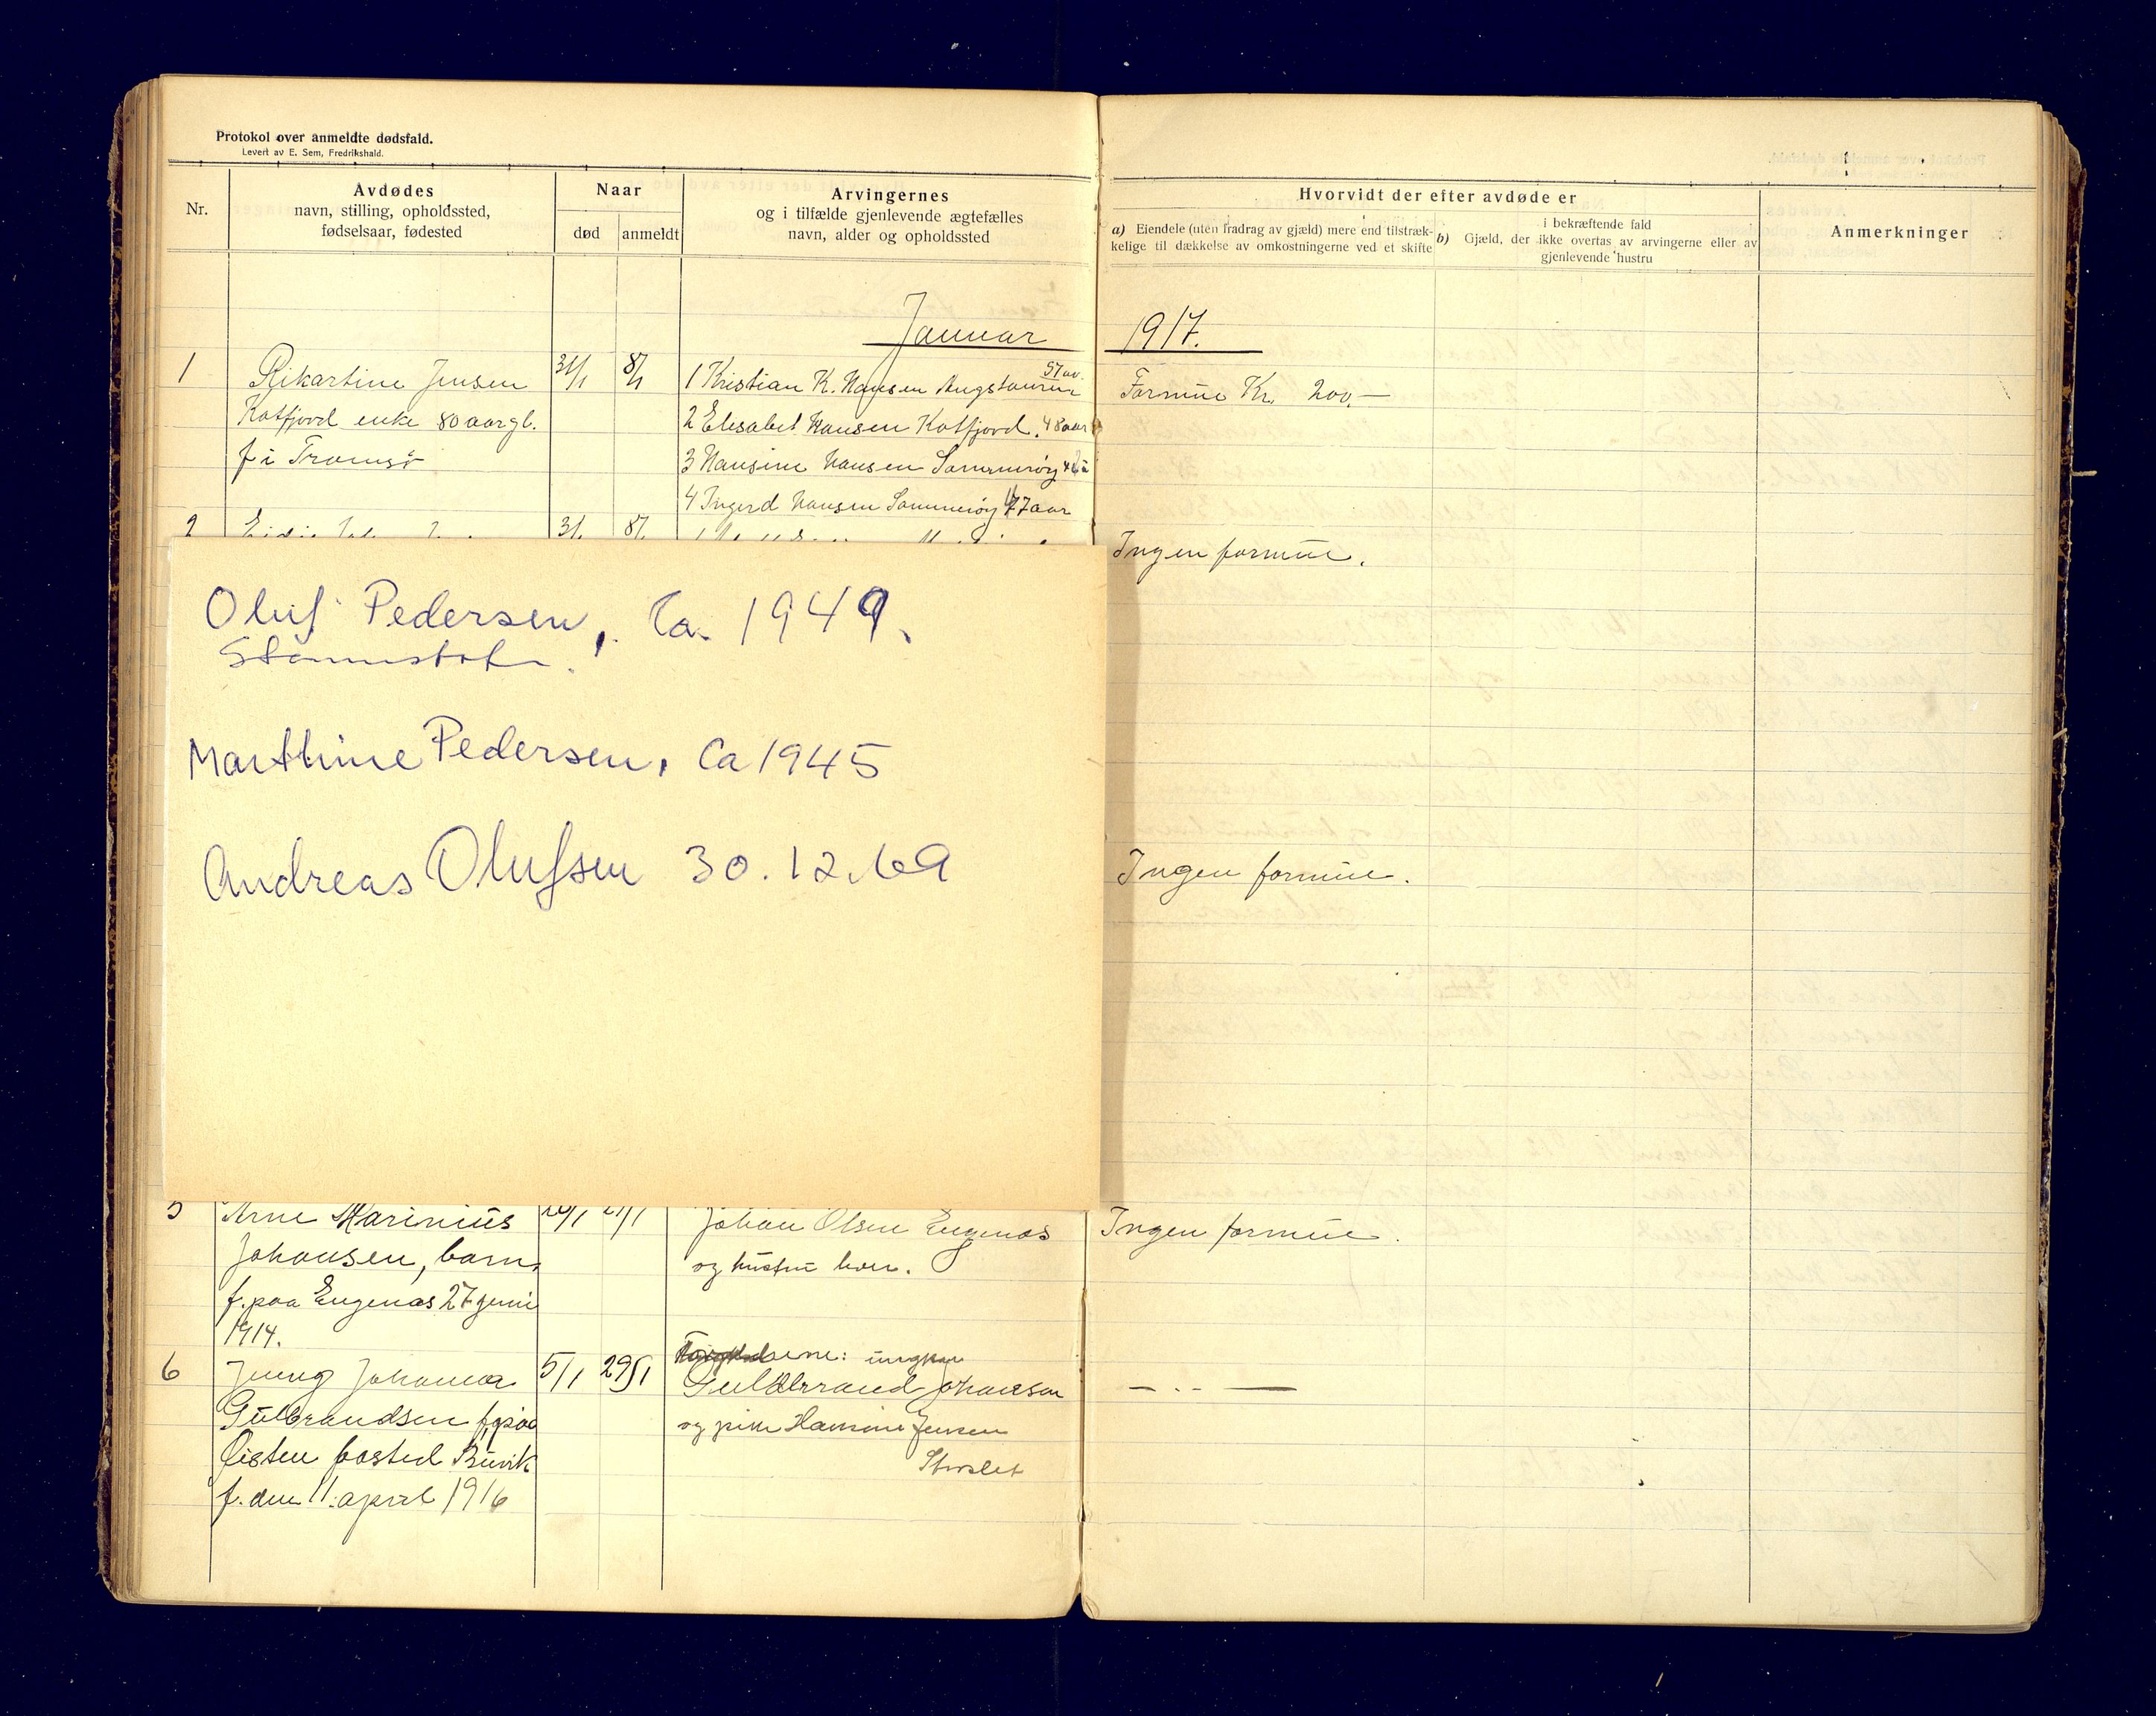 Protokol over anmeldte dødsfald.
Levert av E. Sem, Fredrikshald.
Nr.
Avdødes
navn, stilling, opholdssted,
fødselsaar, fødested
Naar
død
anmeldt
Arvingernes
og i tilfælde gjenlevende ægtefælles
navn, alder og opholdssted
Hvorvidt der efter avdøde er
a) Eiendele (uten fradrag av gjæld) mere end tilstræk-
kelige til dækkelse av omkostningerne ved et skifte
b) i bekræftende fald
Gjæld, der ikke overtas av arvingerne eller av
gjenlevende hustru
Anmerkninger
Januar 1917.
1
Rikartine Jensen
Katfjord enke 80 aar gl.
f i Tromsø
8/1
1 Kristian K. Hansen
2 Elesabet Hansen Katfjord. 48 aar
3 Hansine Hansen Sommerøy
4 Ingerd Hansen Sommerøy 77 aar
Formue Kr. 200.—
2
3/1
8/1
Ingen formue.
Oluf Pedersen, Ca. 1949.
Marthine Pedersen, Ca 1945
Andreas Olufsen 30.12.69
Ingen formue.
5
Arne Marinius
Johansen, barn,
f. paa Engenæs 27 juni
1914.
Johan Olsen Engenæs
og hustru
Ingen formue.
6
Johanna
Gulbrandsen
Øisten bosted Buvik
f. den 11. april 1916
5/1
29/1
Guldbrand Johansen
og pike Hansine Jensen
Storslet
— .. —